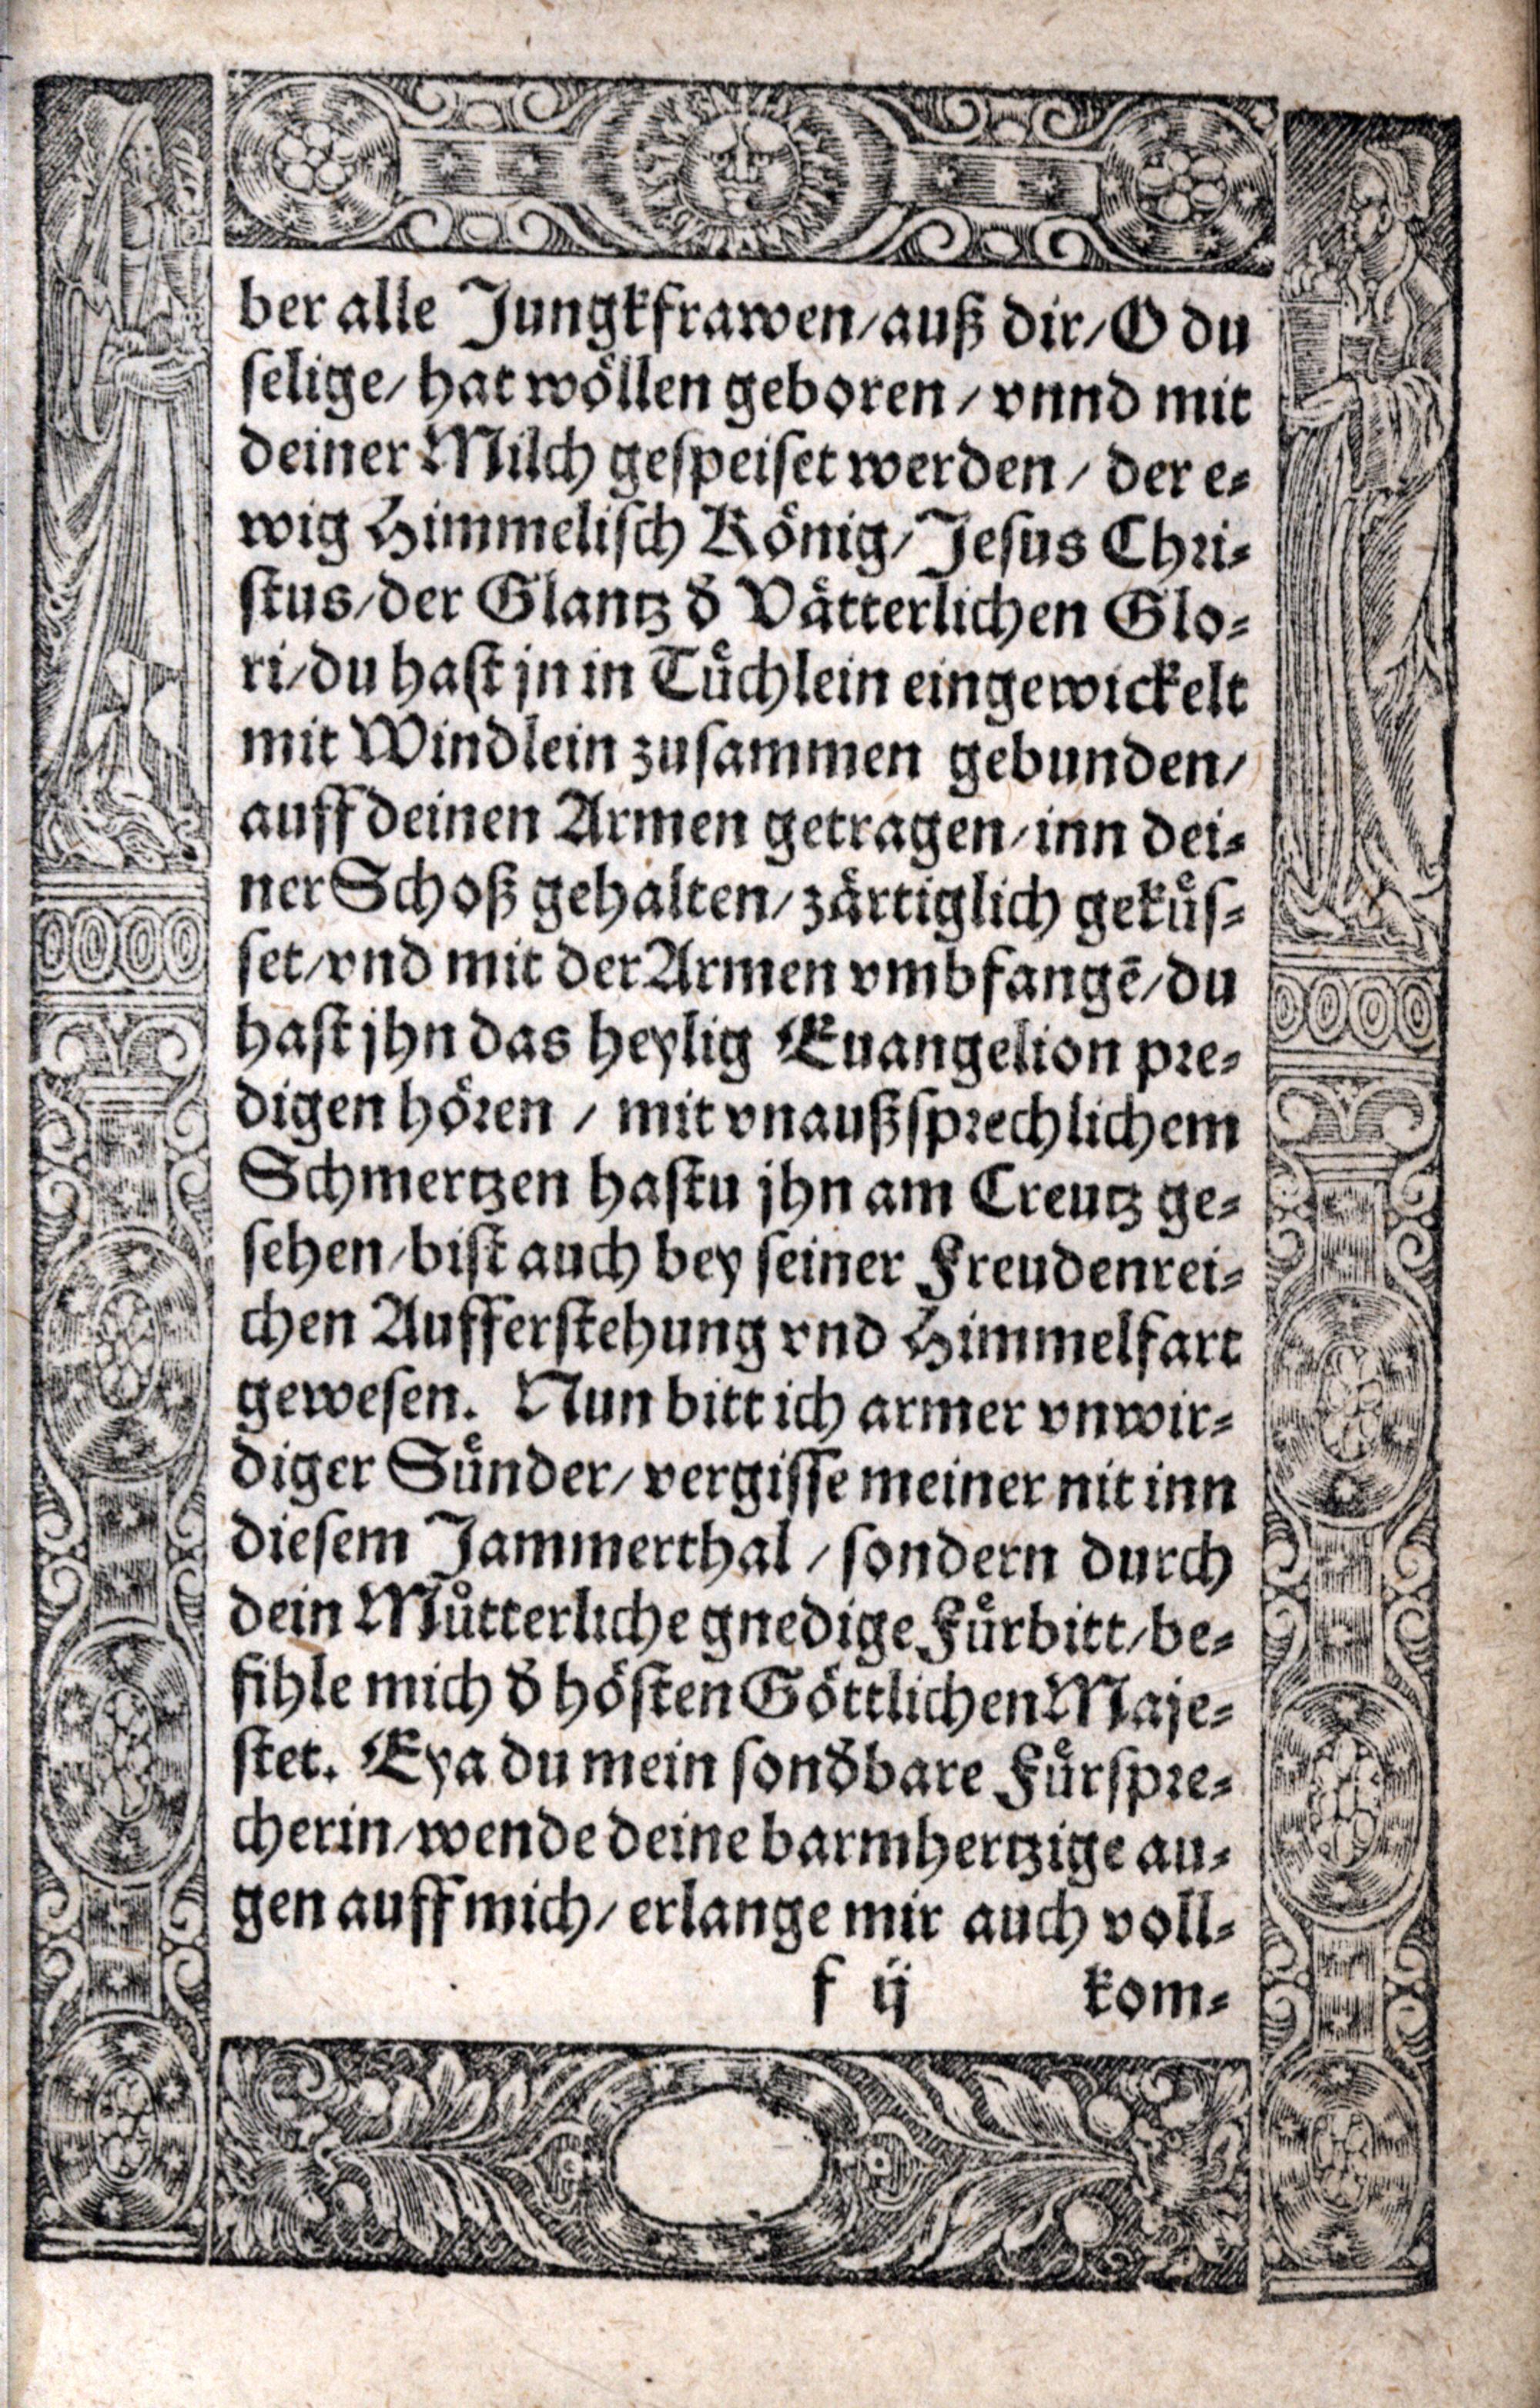 ber alle Jungkfrawen/auß dir/O du
selige/ hat wöllen geboren / vnnd mit
deiner Milch gespeiset werden / der e⸗
wig Himmelisch König/Jesus Chri⸗
stus/der Glantz đ Vätterlichen Glo⸗
ri/du hast jn in Tüchlein eingewickelt
mit Windlein zusammen gebunden/
auff deinen Armen getragen/inn dei⸗
ner Schoß gehalten/zärtiglich geküs⸗
set/vnd mit der Armen vmbfangē/du
hast jhn das heylig Euangelion pre⸗
digen hören / mit vnaußsprechlichem
Schmertzen hastu jhn am Creutz ge⸗
sehen/bist auch bey seiner Freudenrei⸗
chen Aufferstehung vnd Himmelfart
gewesen. Nun bitt ich armer vnwir⸗
diger Sünder/vergisse meiner nit inn
diesem Jammerthal / sondern durch
dein Mütterliche gnedige Fürbitt/be⸗
fihle mich đ hösten Göttlichen Maje⸗
stet. Eya du mein sonđbare Fürspre⸗
cherin/wende deine barmhertzige au⸗
gen auff mich/ erlange mir auch voll⸗
f ij kom⸗